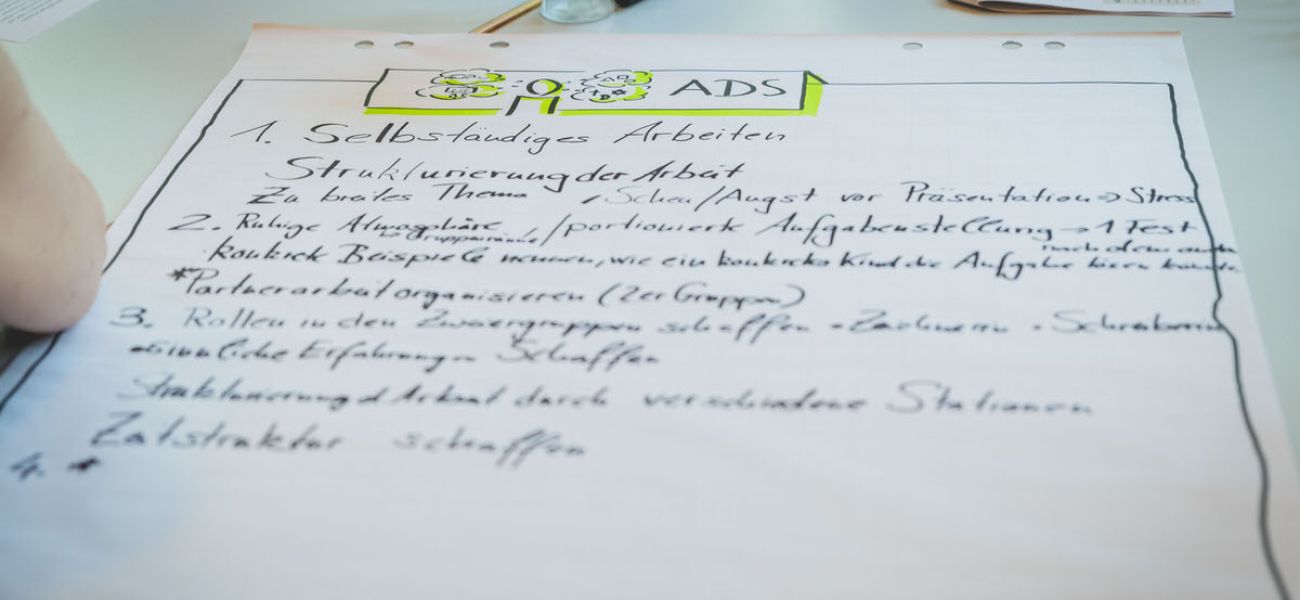 ADS
1. Selbständiges Arbeiten
Strukturierung der Arbeit
Zu breites Thema, Scheu/Angst vor Präsentation => Stress
2. Ruhige Atmosphäre, /portionierte Aufgabenstellung → 1 Test
Gruppenräume
nach dem
konkrete Beispiele nennen, wie ein konkretes Kind die Aufgabe lösen könnte
*Partnerarbeit organisieren (2er Gruppen)
3. Rollen in den Zweiergruppen schaffen - Zeichnerin - Schreiberin
sinnliche Erfahrungen schaffen
Strukturierung d Arbeit durch verschiedene Stationen
Zeitstruktur schaffen
4. *